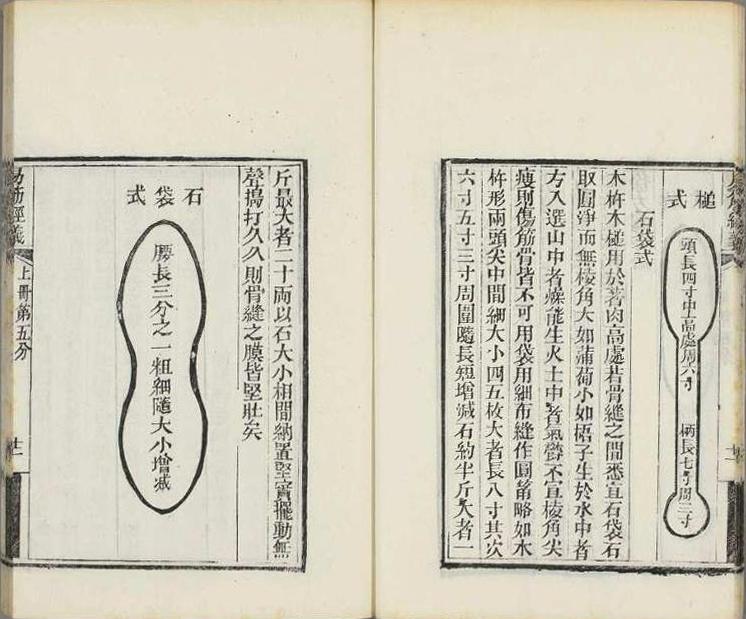 槌式
頭長四寸中高處周六寸
柄長七寸周三寸
石袋式
木杵木槌用於著肉高處若骨縫之間悉宜石袋石
取圓淨而無棱角大如葡萄小如梧子生於水中者
方入選山中者燥能生火土中者氣鬱不宣棱角尖
瘦則傷筋骨皆不可用袋用細布縫作圓筩略如木
杵形兩頭尖中間細大小四五枚大者長八寸其次
六寸五寸三寸周圍隨長短增減石約半斤大者一
斤最大者二十兩以石大小相間納置堅實擺動無
聲搗打久久則骨縫之膜皆堅壯矣
石袋式
腰長三分之一粗細隨大小增減
易筋經義
上冊第五分